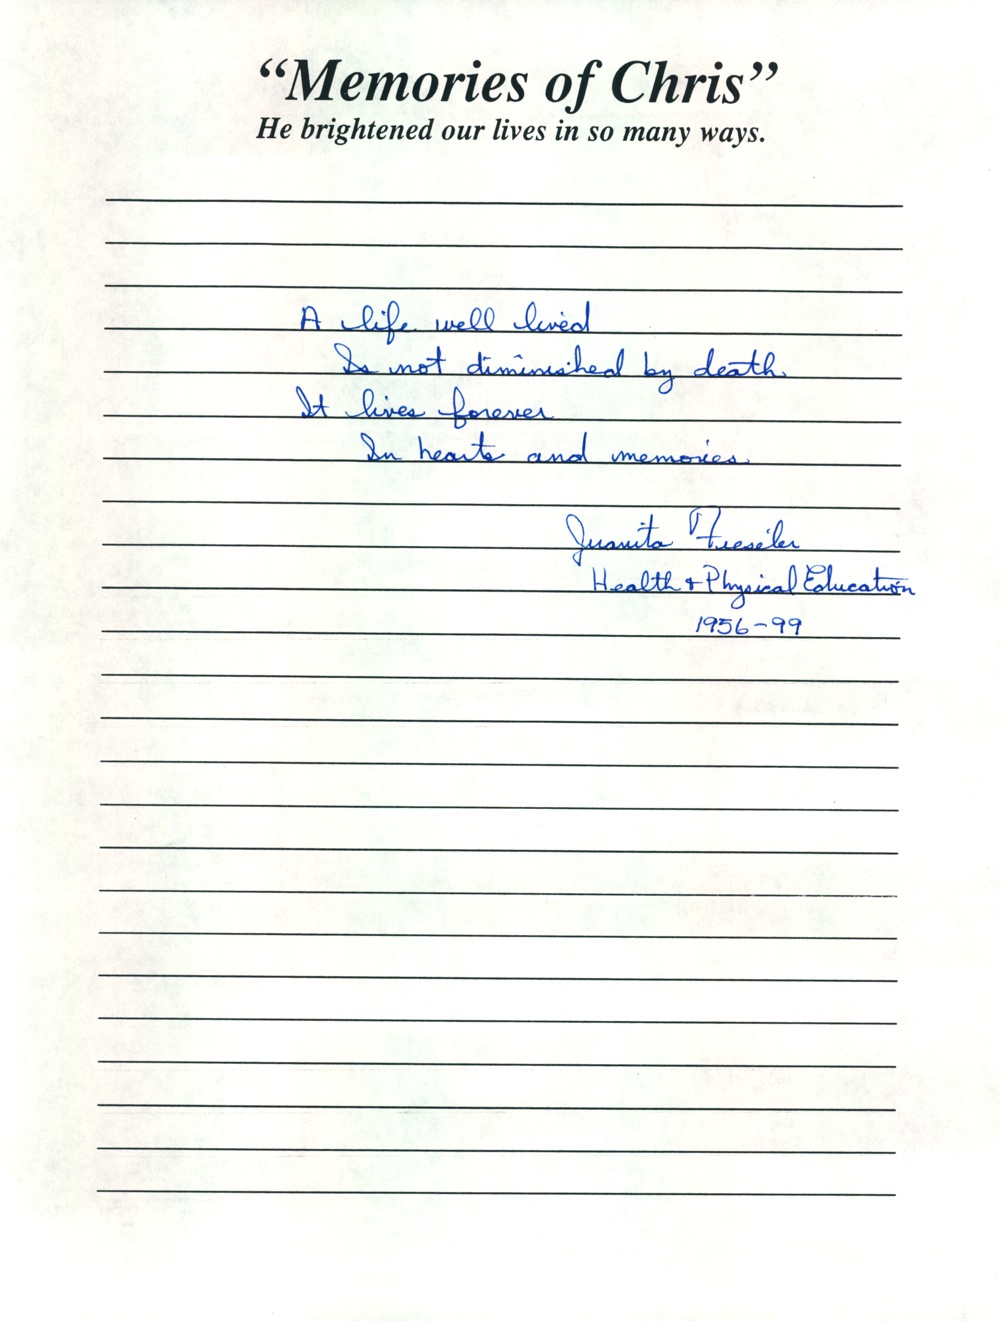 “Memories of Chris”
He brightened our lives in so many ways.
A life well lived
Is not diminished by death.
It lives forever
In hearts and memories.
Juanita
Health & Physical Education
1956-99